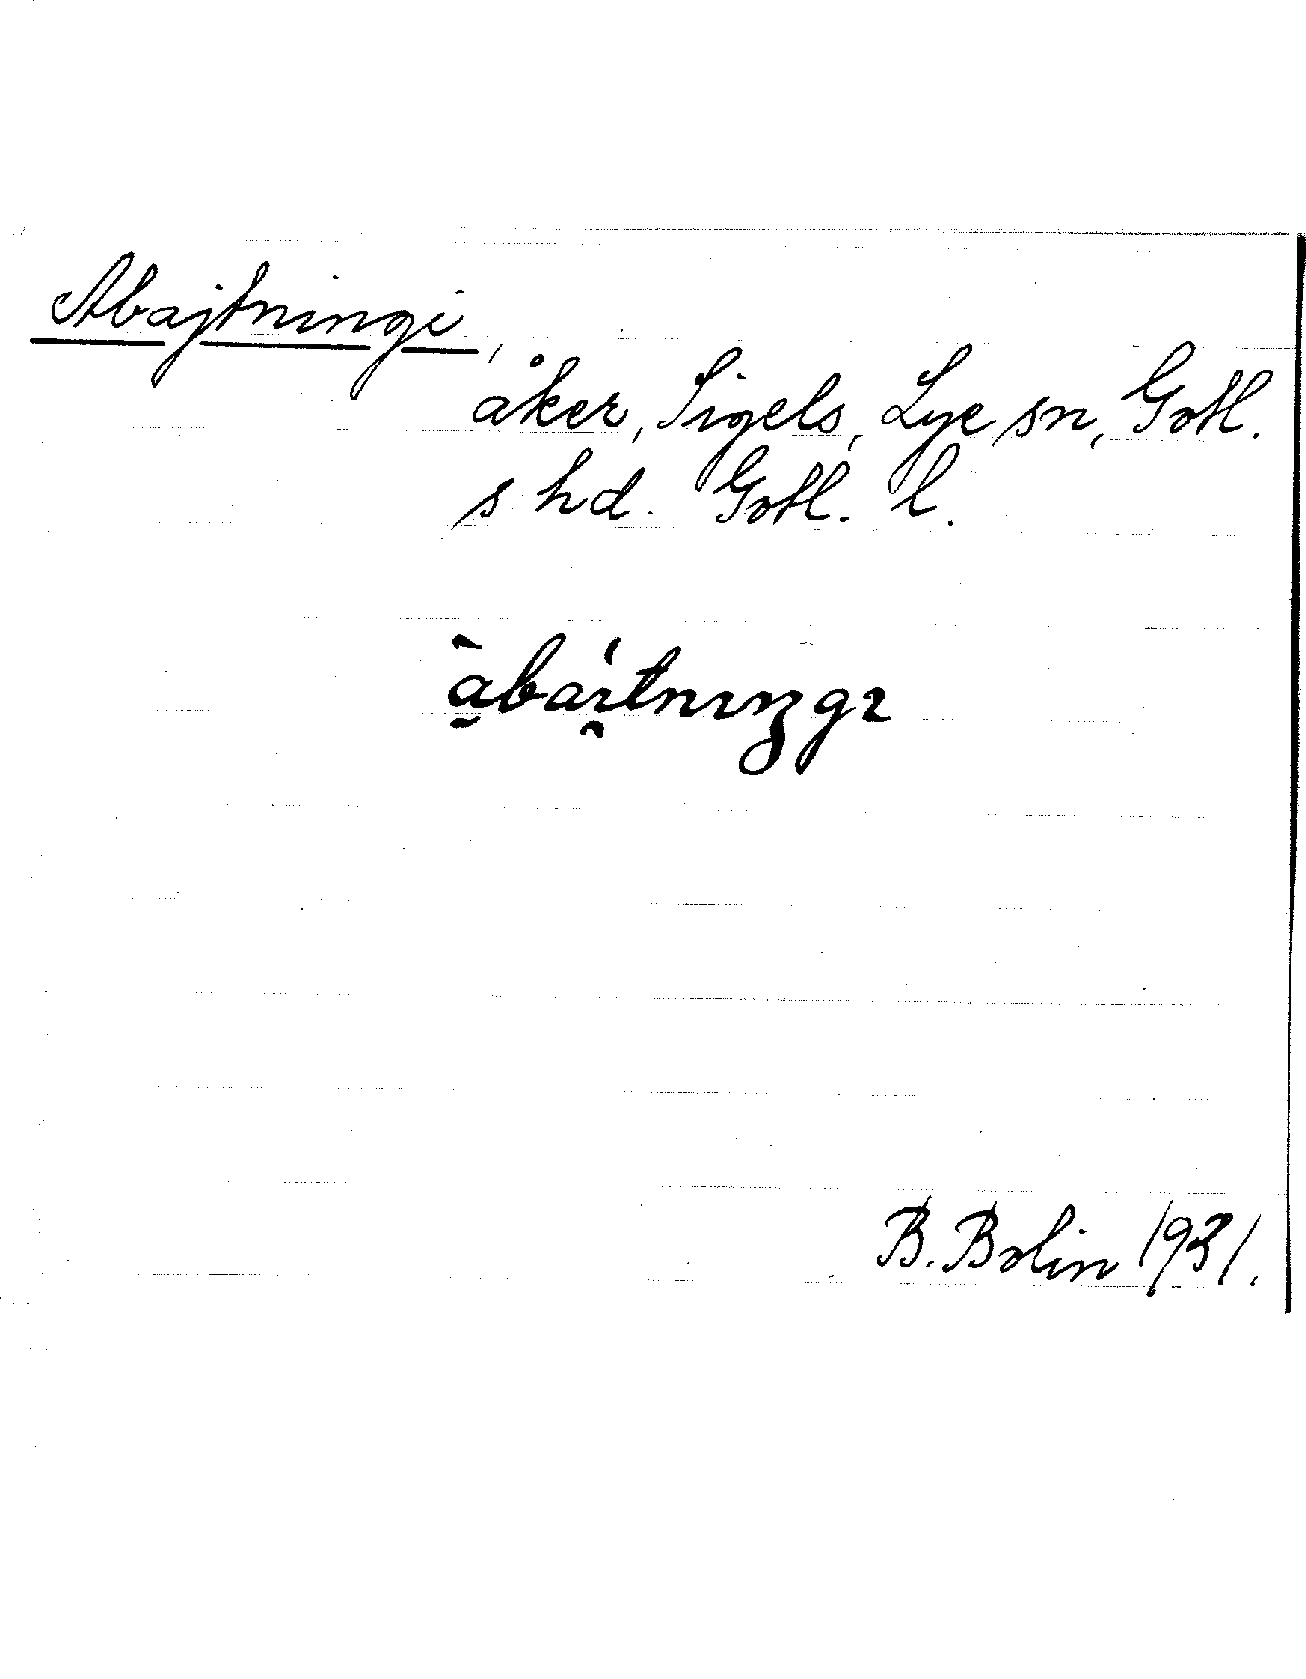 Abajtningi,
åker, Sigels, Lye sn, Gotl.
s hd. Gotl. l.
à̠baí̯tnıŋgı
B. Bolin 1931.